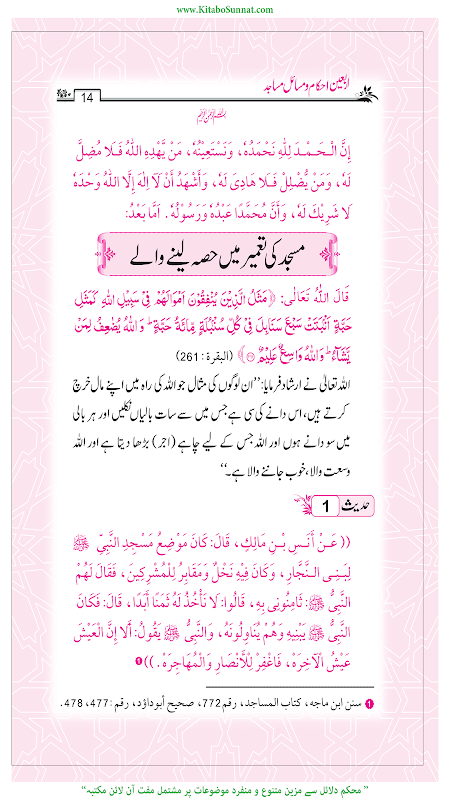 www.KitaboSunnat.com
اربعین احکام ومسائل مساجد
14
إِنَّ الْحَمْدَ لِلّٰهِ نَحْمَدُهٗ، وَنَسْتَعِيْنُهٗ، مَنْ يَّهْدِهِ اللّٰهُ فَلَا مُضِلَّ
لَهٗ، وَمَنْ يُّضْلِلْ فَلَا هَادِيَ لَهٗ، وَأَشْهَدُ أَنْ لَّا إِلٰهَ إِلَّا اللّٰهُ وَحْدَهٗ
لَا شَرِيْكَ لَهٗ، وَأَنَّ مُحَمَّدًا عَبْدُهٗ وَرَسُوْلُهٗ. اَمَّا بَعْدُ:
مسجد کی تعمیر میں حصہ لینے والے
قَالَ اللّٰهُ تَعَالٰی: ﴿مَثَلُ الَّذِيْنَ يُنْفِقُوْنَ اَمْوَالَهُمْ فِيْ سَبِيْلِ اللّٰهِ كَمَثَلِ
حَبَّةٍ اَنْۢبَتَتْ سَبْعَ سَنَابِلَ فِيْ كُلِّ سُنْۢبُلَةٍ مِّائَةُ حَبَّةٍ ؕ وَ اللّٰهُ يُضٰعِفُ لِمَنْ
يَّشَآءُ ؕ وَ اللّٰهُ وَاسِعٌ عَلِيْمٌ﴾ (البقرة: 261)
اللہ تعالیٰ نے ارشاد فرمایا: ”ان لوگوں کی مثال جو اللہ کی راہ میں اپنے مال خرچ
کرتے ہیں، اس دانے کی سی ہے جس میں سے سات بالیاں نکلیں اور ہر بالی
میں سو دانے ہوں اور اللہ جس کے لیے چاہے (اجر) بڑھا دیتا ہے اور اللہ
وسعت والا، خوب جاننے والا ہے۔“
حدیث 1
((عَنْ أَنَسِ بْنِ مَالِكٍ، قَالَ: كَانَ مَوْضِعُ مَسْجِدِ النَّبِيِّ ﷺ
لِبَنِي النَّجَّارِ، وَكَانَ فِيْهِ نَخْلٌ وَمَقَابِرُ لِلْمُشْرِكِيْنَ، فَقَالَ لَهُمُ
النَّبِيُّ ﷺ: ثَامِنُوْنِي بِهِ، قَالُوْا: لَا نَأْخُذُ لَهُ ثَمَنًا أَبَدًا، قَالَ: فَكَانَ
النَّبِيُّ ﷺ يَبْنِيهِ وَهُمْ يُنَاوِلُونَهُ، وَالنَّبِيُّ ﷺ يَقُولُ: أَلَا إِنَّ الْعَيْشَ
عَيْشُ الْآخِرَهْ، فَاغْفِرْ لِلْأَنْصَارِ وَالْمُهَاجِرَهْ.)) ❶
❶ سنن ابن ماجه، کتاب المساجد، رقم 772، صحیح أبو داؤد، رقم: 477، 478.
”محکم دلائل سے مزین متنوع و منفرد موضوعات پر مشتمل مفت آن لائن مکتبہ“